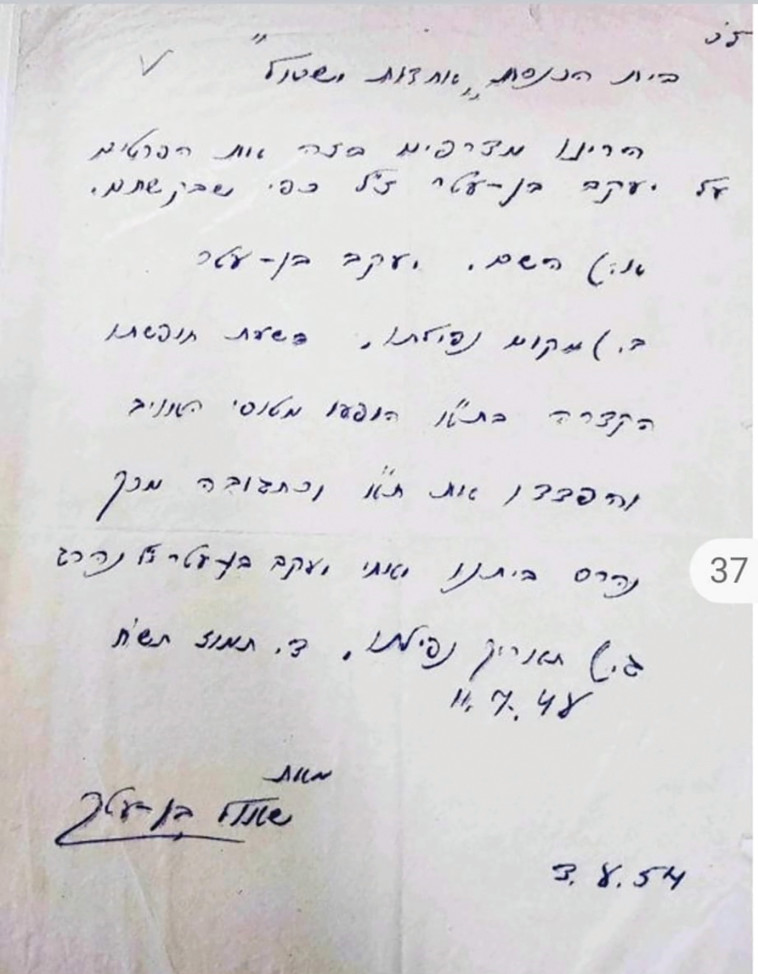 לכ׳
בית הכנסת ,,אחדות ישראל"
הרינו מצרפים בזה את הפרטים
על יעקב בן-עטר ז"ל כפי שבקשתם.
א.) השם. יעקב בן-עטר
ב.) מקום נפילתו. בשעת חופשתו
הקצרה בת"א הופעו מטוסי האויב
והפצצו את ת"א וכתגובה מכך
נהרס ביתנו ואחי יעקב בן-עטר ז"ל נהרג
ג.) תאריך נפילתו. ד. תמוז תש"ח
11.7.48
מאת
שאול בן-עטר
3.8.54
37